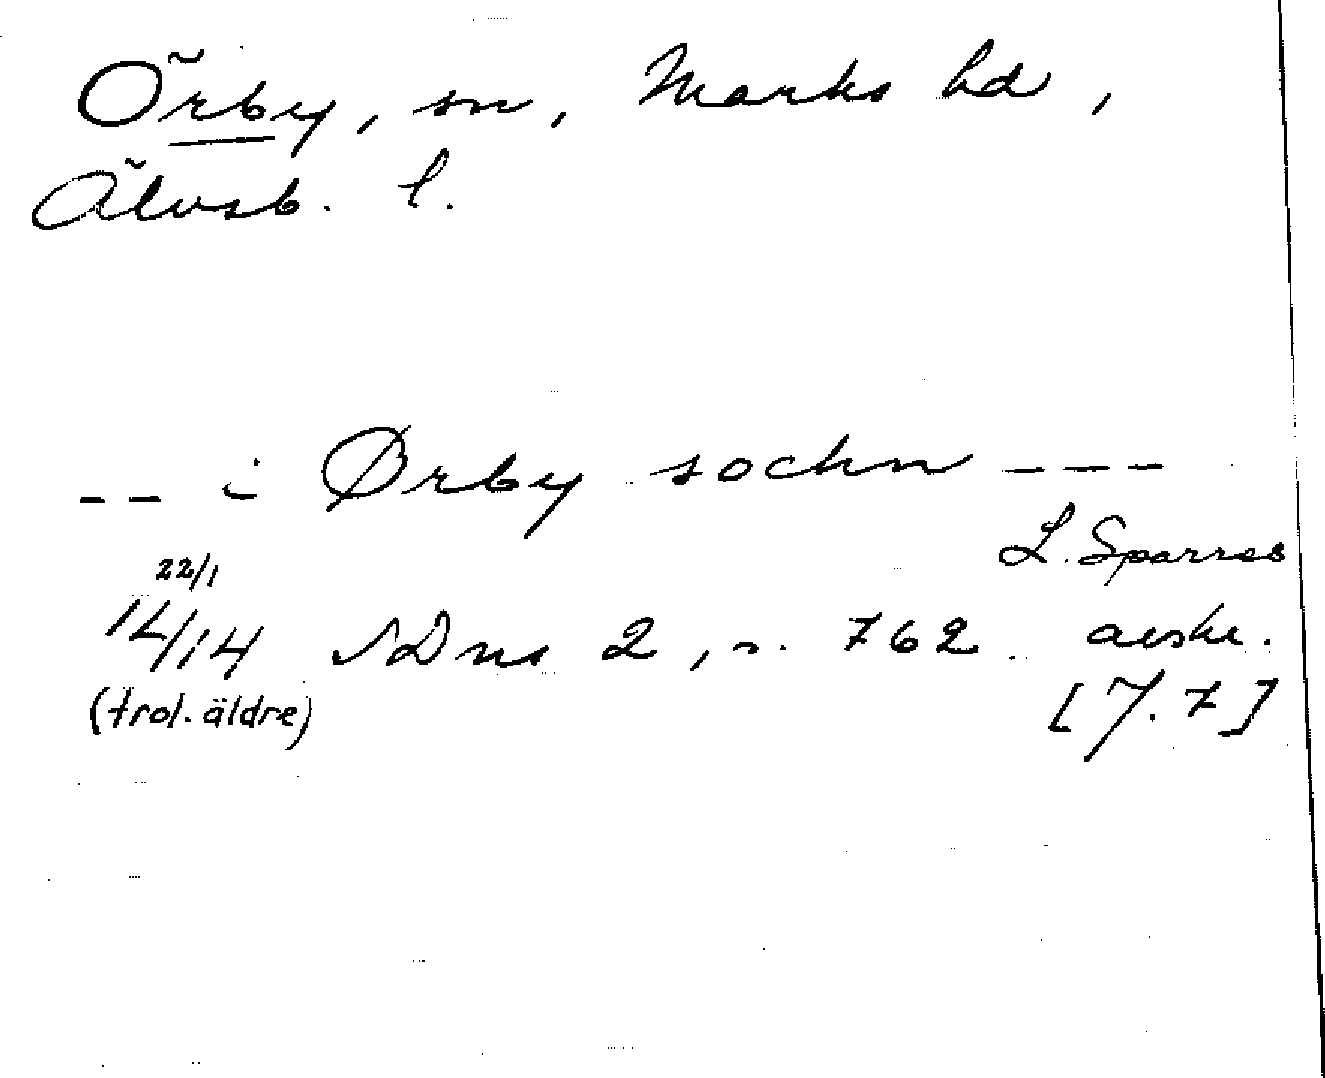 Örby, sn, Marks hd,
Älvsb. l.
-- i Ørby sochn ---
L. Sparres
22/1
14/14 SDns 2, s. 762 avskr.
(trol. äldre) [7.7]